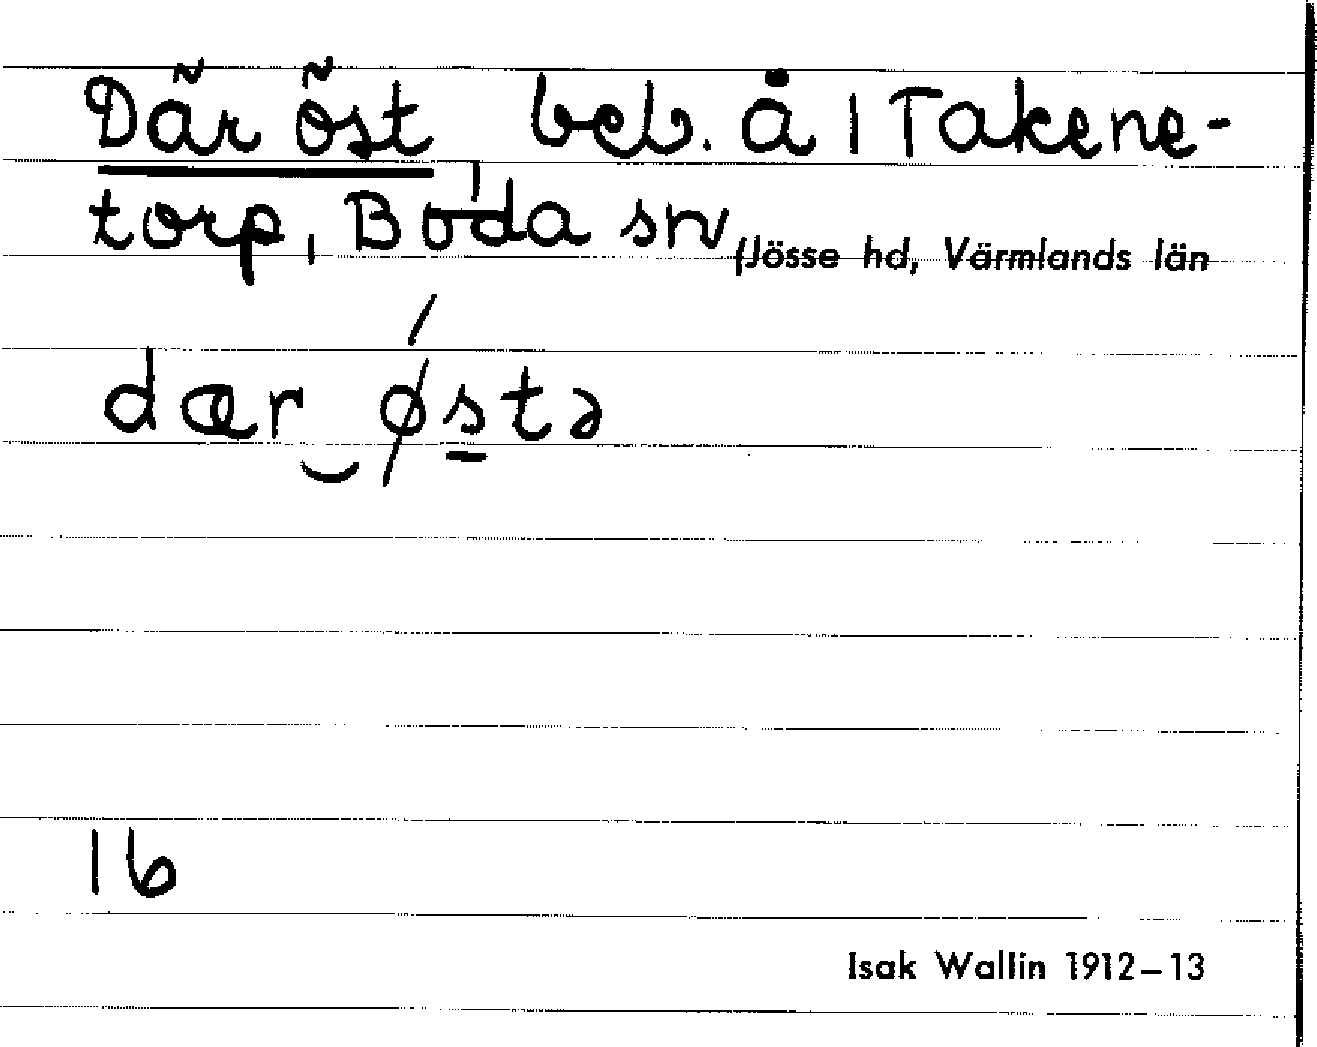 Där öst beb. å 1 Takene-
torp, Boda sn, Jösse hd, Värmlands län
dær‿østə
16
Isak Wallin 1912–13